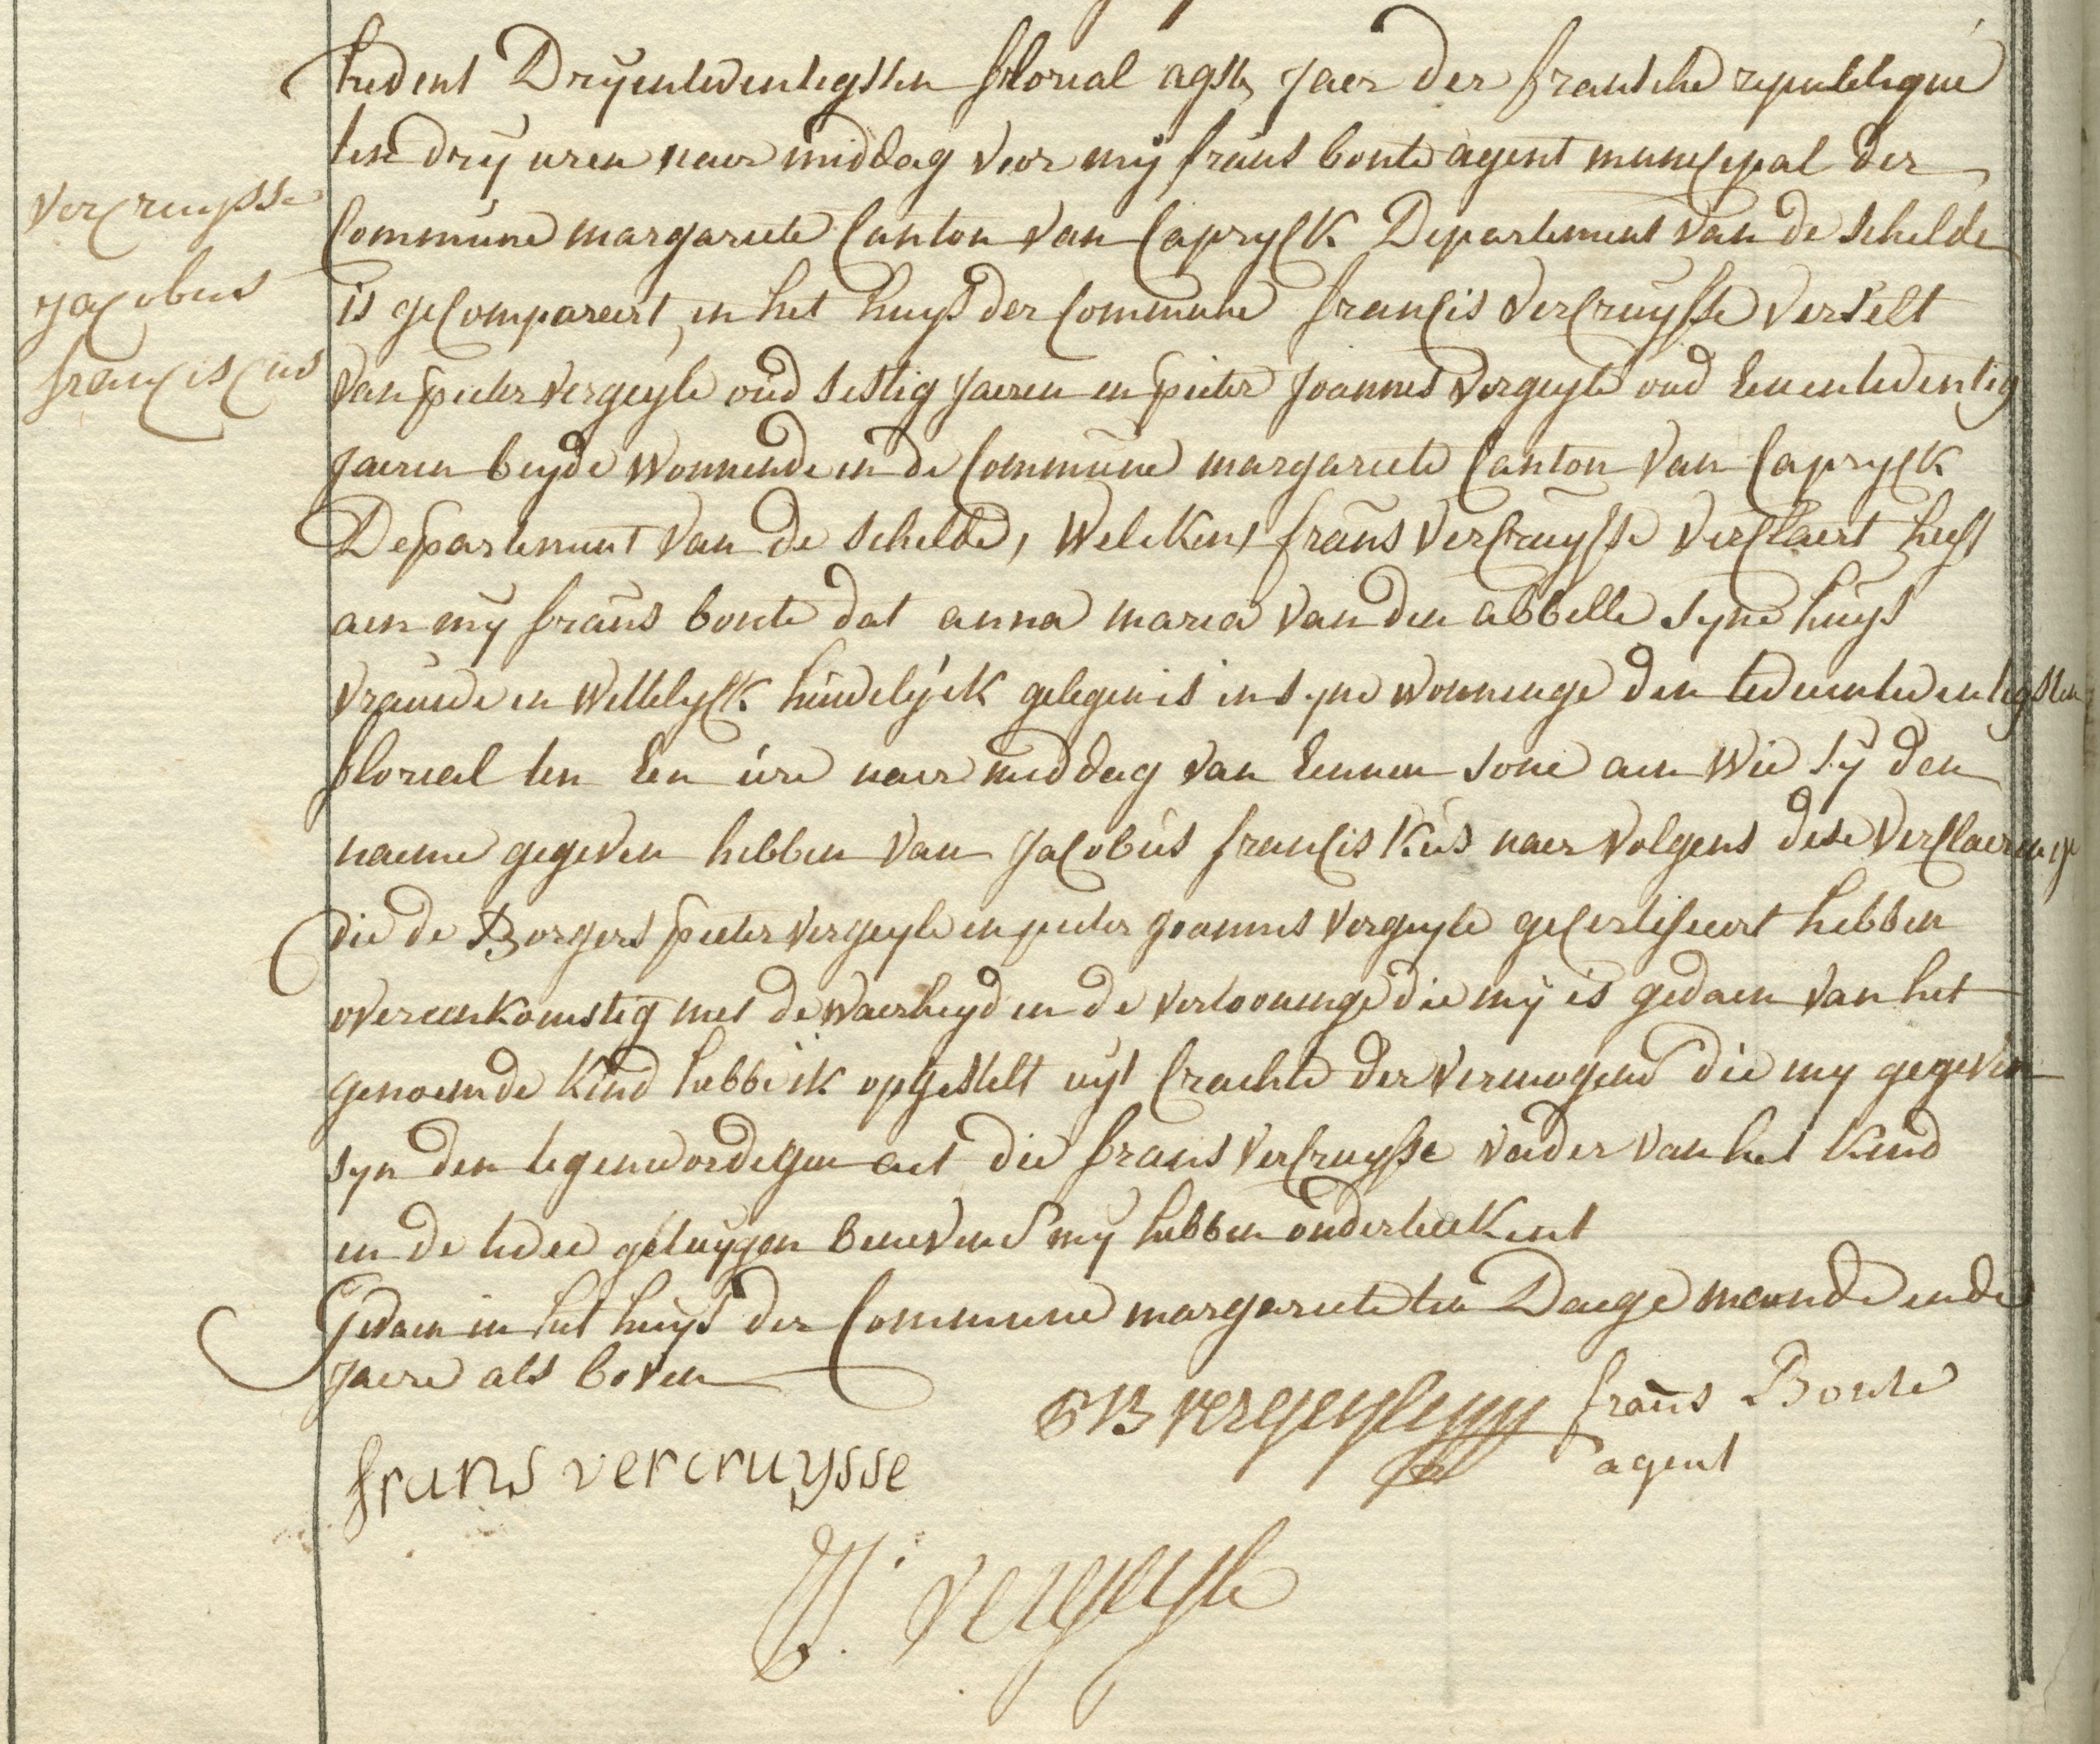 hedent Dryentwentegsten florial agste jaer der fransche republiqué
ten dry uren naer middag voor mij frans bonte agent municipal der
Commune margariete Canton van Capryck Departement van de schelde
is gecompareert in het huys der Commune francis vercruysse verselt
van pieter vergeyle oud sestig jaeren en pieter joannes vergeyle oud eenentwentig
jaeren beyde wonnende in de Commune margariete Canton van Capryck
Departement van de schelde, welcken frans vercruysse verclaert heeft
aen mij frans bonte dat anna maria van den abbelle syne huys
vrauwe en wettelyck huwelijck gelegen is in syne wonninge den tweentwentegsten
florial ten een ure naer middag van eennen sone aen wie sy den
naeme gegeven hebben van jacobus franciskus naer volgens dese verclaeringe
die de Borgers pieter vergeyle en pieter joannes vergeyle gecertifieert hebben
overeenkomstig met de waerheyd en de vertooninge die mij is gedaen van het
genoemde kind hebbe ik opgestelt uyt crachte der vermogens die my gegeven
syn den tegenwordegen act die frans vercruysse vader van het kind
en de twee getuygen benevens my hebben onderteekent
Gedaen in het huys der Commune margariete ten Daege maende ende
jaere als boven
vercruysse
jacobus
franciscus
frans Bonte
agent
frans vercruysse
vergeyle